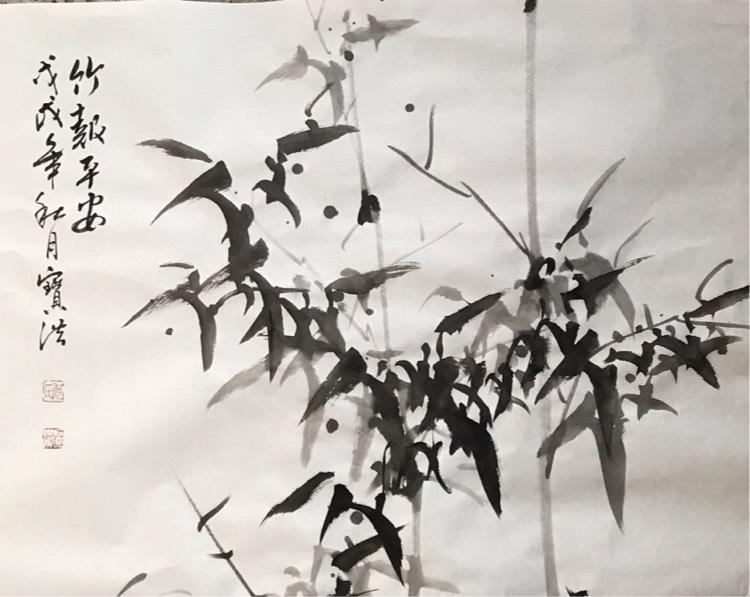 竹報平安
戊戌年秋月寶洪